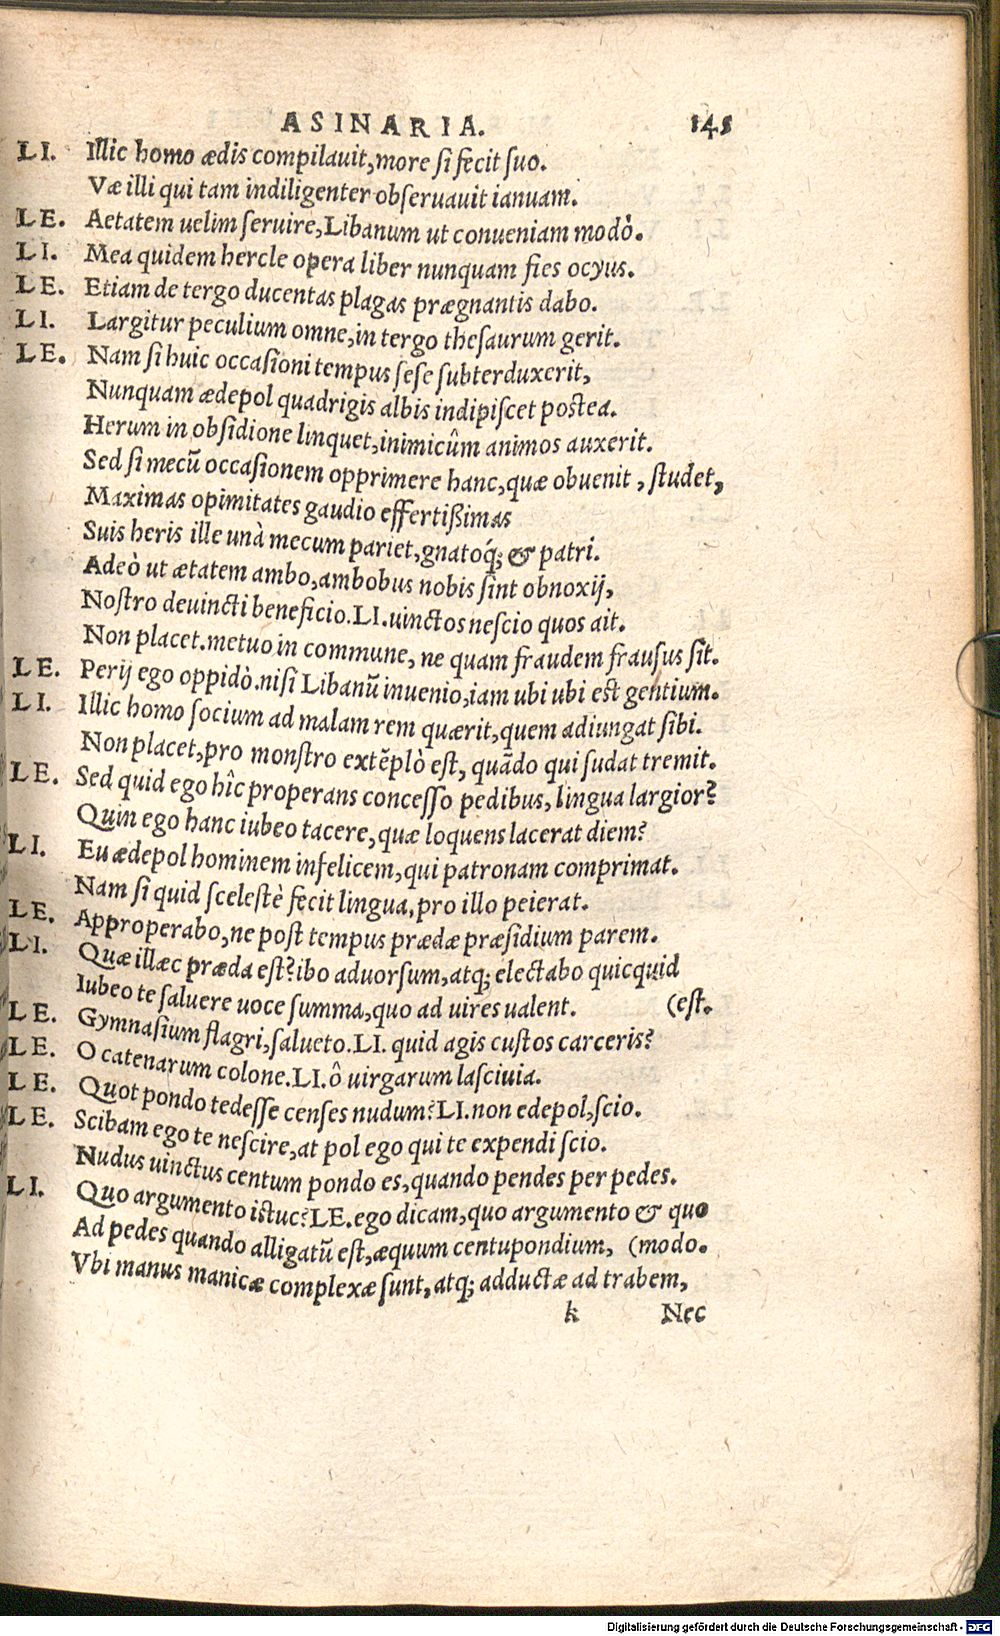 ASINARIA. 145
LI. Illic homo ædis compilauit, more si fecit suo.
Væ illi qui tam indiligenter obseruauit ianuam.
LE. Aetatem uelim seruire, Libanum ut conueniam modò.
LI. Mea quidem hercle opera liber nunquam fies ocyus.
LE. Etiam de tergo ducentas plagas prægnantis dabo.
LI. Largitur peculium omne, in tergo thesaurum gerit.
LE. Nam si huic occasioni tempus sese subterduxerit,
Nunquam ædepol quadrigis albis indipiscet postea.
Herum in obsidione linquet, inimicûm animos auxerit.
Sed si mecũ occasionem opprimere hanc, quæ obuenit, studet,
Maximas opimitates gaudio effertißimas
Suis heris ille unà mecum pariet, gnatoq́; & patri.
Adeò ut ætatem ambo, ambobus nobis sint obnoxij,
Nostro deuincti beneficio. LI. uinctos nescio quos ait.
Non placet. metuo in commune, ne quam fraudem frausus sit.
LE. Perij ego oppidò. nisi Libanũ inuenio, iam ubi ubi est gentium.
LI. Illic homo socium ad malam rem quærit, quem adiungat sibi.
Non placet, pro monstro extẽplò est, quãdo qui sudat tremit.
LE. Sed quid ego hîc properans concesso pedibus, lingua largior?
Quin ego hanc iubeo tacere, quæ loquens lacerat diem?
LI. Eu ædepol hominem infelicem, qui patronam comprimat.
Nam si quid scelestè fecit lingua, pro illo peierat.
LE. Approperabo, ne post tempus prædæ præsidium parem.
LI. Quæ illæc præda est? ibo aduorsum, atq; electabo quicquid
Iubeo te saluere uoce summa, quo ad uires ualent. (est.
LE. Gymnasium flagri, salueto. LI. quid agis custos carceris?
LE. O catenarum colone. LI. ô uirgarum lasciuia.
LE. Quot pondo tedesse censes nudum? LI. non edepol, scio.
LE. Scibam ego te nescire, at pol ego qui te expendi scio.
Nudus uinctus centum pondo es, quando pendes per pedes.
LI. Quo argumento istuc? LE. ego dicam, quo argumento & quo
Ad pedes quando alligatũ est, æquum centupondium, (modo.
Vbi manus manicæ complexæ sunt, atq; adductæ ad trabem,
k Nec
Digitalisierung gefördert durch die Deutsche Forschungsgemeinschaft - DFG